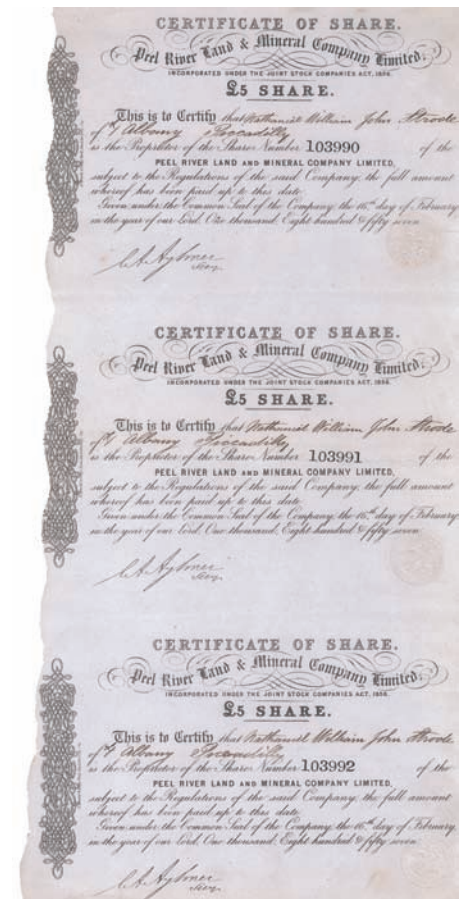 CERTIFICATE OF SHARE.
Peel River Land & Mineral Company Limited,
INCORPORATED UNDER THE JOINT STOCK COMPANIES ACT, 1856.
£5 SHARE.
This is to Certify that Nathaniel William John Strode
of Albany Piccadilly
is the Proprietor of the Share Number 103990 of the
PEEL RIVER LAND AND MINERAL COMPANY LIMITED,
subject to the Regulations of the said Company, the full amount
whereof has been paid up to this date.
Given under the Common Seal of the Company, the 16th day of February
in the year of our Lord, One thousand, Eight hundred & fifty seven
Aylmer
Secy.
CERTIFICATE OF SHARE.
Peel River Land & Mineral Company Limited,
INCORPORATED UNDER THE JOINT STOCK COMPANIES ACT, 1856.
£5 SHARE.
This is to Certify that Nathaniel William John Strode
of Albany Piccadilly
is the Proprietor of the Share Number 103991 of the
PEEL RIVER LAND AND MINERAL COMPANY LIMITED,
subject to the Regulations of the said Company, the full amount
whereof has been paid up to this date.
Given under the Common Seal of the Company, the 16th day of February
in the year of our Lord, One thousand, Eight hundred & fifty seven
Aylmer
Secy.
CERTIFICATE OF SHARE.
Peel River Land & Mineral Company Limited,
INCORPORATED UNDER THE JOINT STOCK COMPANIES ACT, 1856.
£5 SHARE.
This is to Certify that Nathaniel William John Strode
of Albany Piccadilly
is the Proprietor of the Share Number 103992 of the
PEEL RIVER LAND AND MINERAL COMPANY LIMITED,
subject to the Regulations of the said Company, the full amount
whereof has been paid up to this date.
Given under the Common Seal of the Company, the 16th day of February
in the year of our Lord, One thousand, Eight hundred & fifty seven
Aylmer
Secy.